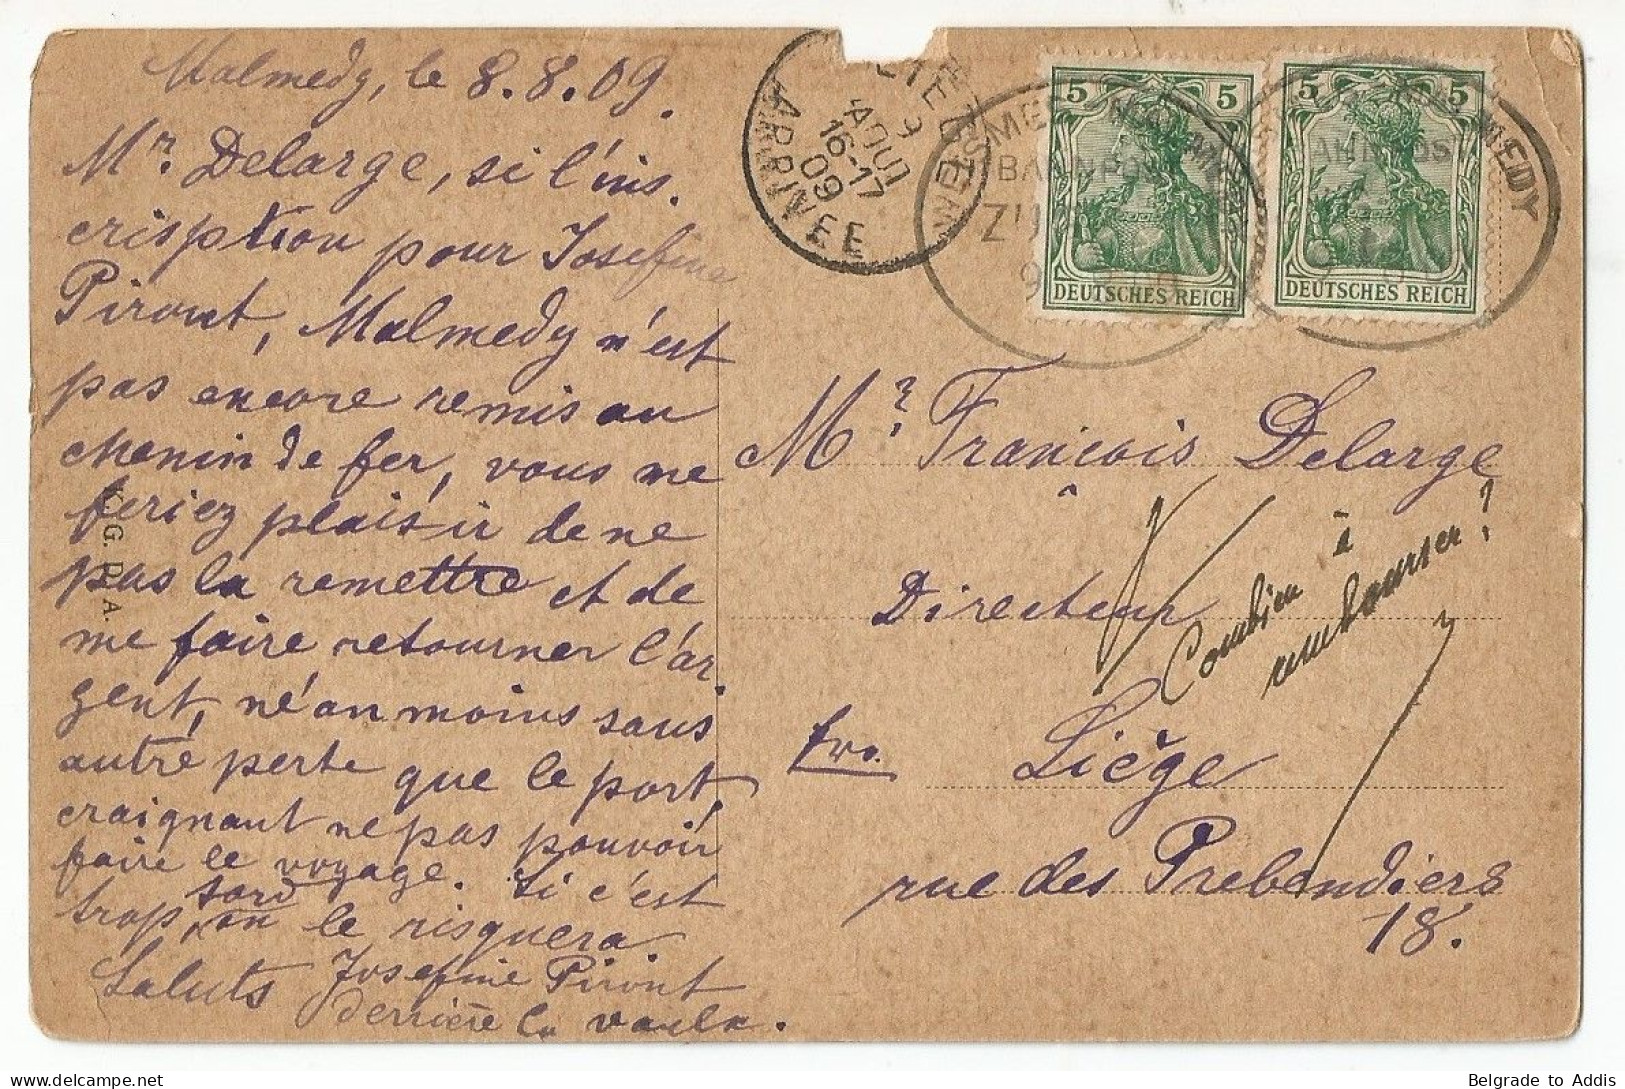 Malmedy, le 8.8.09.
Mr. Delarge, si l'ins.
cription pour Josefine
Piront, Malmedy n'est
pas encore remis au
chemin de fer, vous me
feriez plaisir de ne
pas la remettre et de
me faire retourner l'ar
gent, né an moins sans
autre perte que le port,
craignant ne pas pouvoir
faire le voyage. Si c'est
trop tard on le risquera
Saluts Josefine Piront
derrière la vaulx.
K. G. D. A.
ARRIVEE
9
AOUT
16-17
09
5 5
DEUTSCHES REICH
5 5
DEUTSCHES REICH
BAHNPOST
MEDY
Mr. François Delarge
Directeur
fro. Liège
rue des Prebendiers
18.
Combien à
rembourser?
Belgrade to Addis